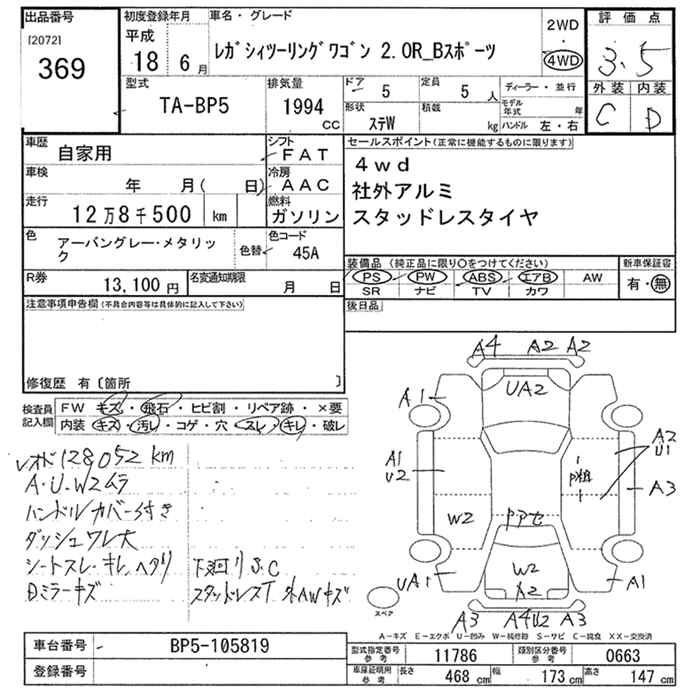 出品番号
[2072]
369
初度登録年月
平成
18 6月
車名・グレード
ﾚｶﾞｼｨﾂｰﾘﾝｸﾞﾜｺﾞﾝ 2.0R_Bｽﾎﾟｰﾂ
2WD
・
4WD
評価点
3.5
外装 内装
C D
型式
TA-BP5
排気量
1994
cc
ドア
5
定員
5 人
形状
ｽﾃW
積載
kg
ディーラー・並行
モデル年式 年
ハンドル 左・右
車歴
自家用
シフト
FAT
車検
年 月( 日)
冷房
AAC
走行
12万8千500 km
燃料
ガソリン
色
アーバングレー・メタリック
色替
色コード
45A
R券
13,100円
名変通知期限
月 日
セールスポイント(正常に機能するものに限ります)
4wd
社外アルミ
スタッドレスタイヤ
装備品(純正品に限り〇をつけてください)
PS PW ABS エアB AW
SR ナビ TV カワ
新車保証書
有・無
後日品
注意事項申告欄(不具合内容等は具体的に記入して下さい)
修復歴 有〔箇所 〕
検査員記入欄
FW キズ・飛石・ヒビ割・リペア跡・×要
内装 キズ・汚レ・コゲ・穴 スレ・キレ・破レ
メオド128052km
A・U・W2ムラ
ハンドルカバー付き
ダッシュワレ大
シートスレ・キレ、ヘタリ
Dミラーキズ
下廻りS、C
スタッドレスT 外AWキズ
A4 A2 A2
UA2
A1
A1
U2
A2
U1
A3
W2
W2
A2
UA1
A1
A3 A4U2 A3
スペア
A-キズ E-エクボ U-凹み W-補修跡 S-サビ C-腐食 XX-交換済
車台番号
BP5-105819
登録番号
型式指定番号
参考
11786
類別区分番号
参考
0663
車庫証明用
参考
長さ
468 cm
幅
173 cm
高さ
147 cm